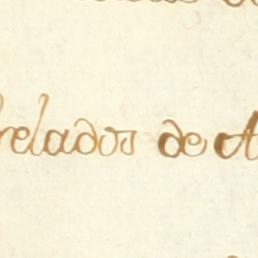 relados de A